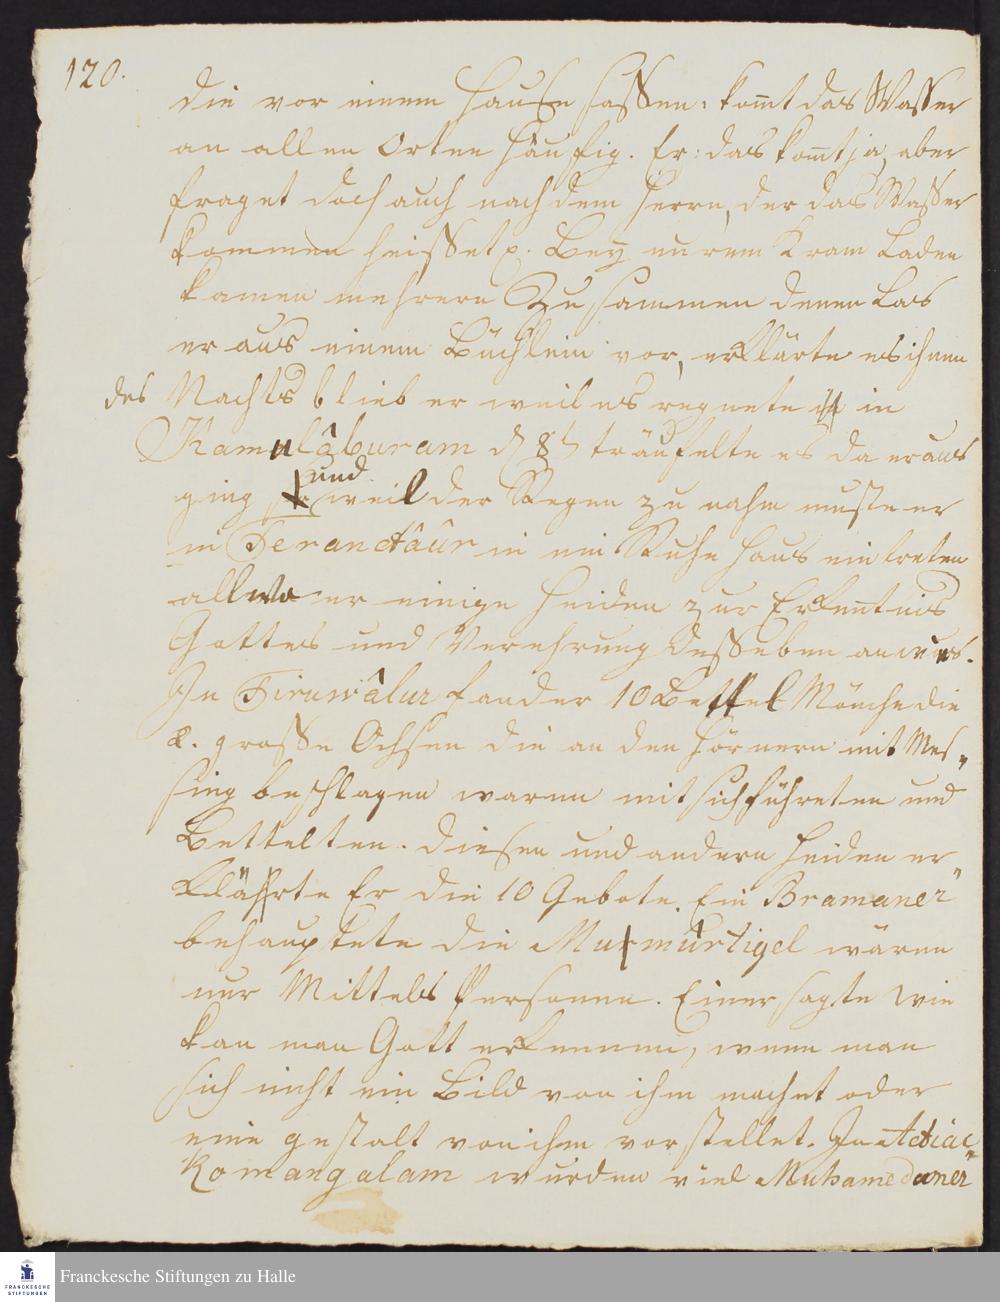 120.
die vor einem Hause sassen: kom̅t das Wasser
an allen Orten häufig. Er: das kom̅t ja, aber
fraget doch auch nach dem Herrn, der das Wasser
kommen heisset p. Bey einem Kram Laden
kamen mehrere Zusammen denen Las
er aus einem Büchlein vor, erklärte es ihnen
des Nachts blieb er weil es regnete in
Kamulâburam d 8t träufelte es da er aus
ging und weil der Regen zu nahm muste er
in Teranctâûr in ein Ruhe Haus eintreten
allwo er einige Heiden zur Erkentnis
Gottes und Verehrung desselben anwies.
In Tiruwâlur fand er 10 Bettel Mönche die
2. grosse Ochsen die an den Hörnern mit Mes-
sing beschlagen waren mit sich führeten und
Bettelten. diesen und andern Heiden er-
klährte Er die 10 Gebote. Ein Bramaner
behauptete die Mumûrtigel wären
nur Mittels Personen. Einer sagte wie
kan man Gott erkennen, wenn man
sich nicht ein Bild von ihm machet oder
eine gestalt von ihm vorstellet. In Adiac-
komangalam wurden viel Muhamedaner
Franckesche Stiftungen zu Halle
FRANCKESCHE
STIFTUNGEN